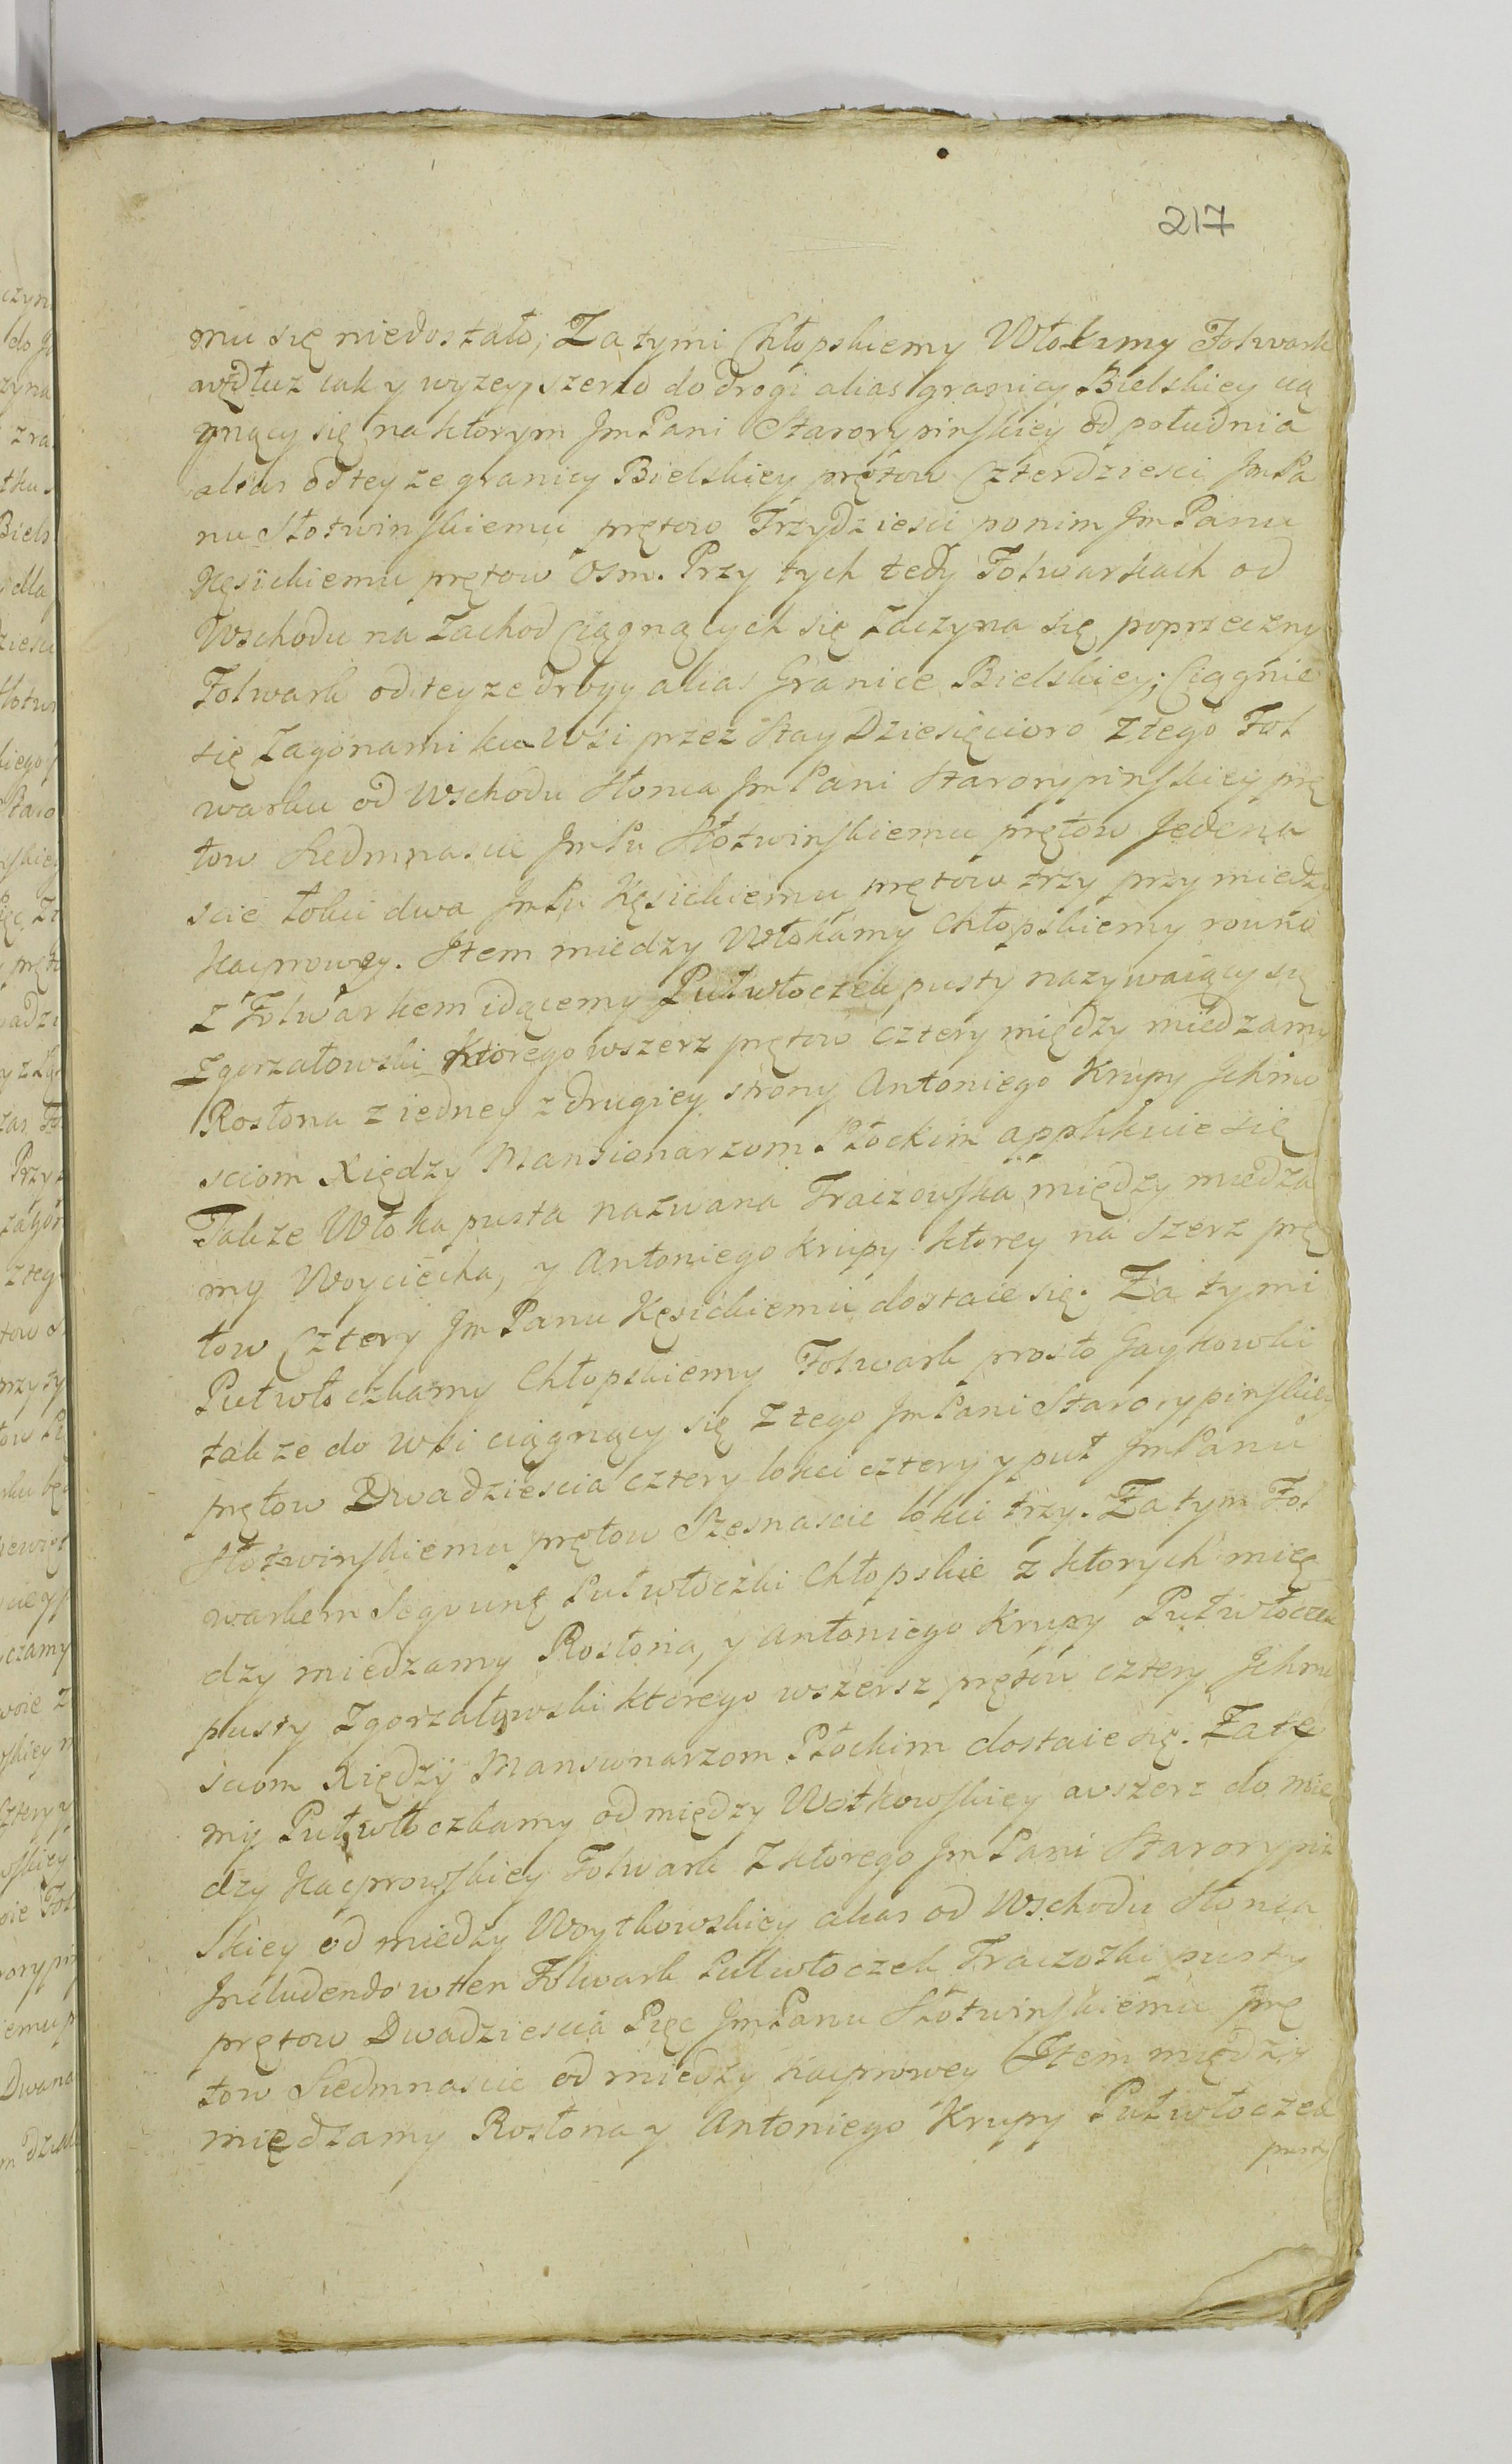 217
mu się niedostało; Za tymi Chłopskiemy Włokamy Folwark
wzdłuz iak y wyzey, szerzo do drogi alias granicy Bielskiey cią
gnący się na ktorym Jm Pani Starorypinskiey od południa
alias od teyze granicy Bielskiey prętow Czterdziesci Jm Pa
nu Słotwinskiemu prętow Trzydziesci ponim Jm Panu
Kęsickiemu prętow Osm. Przy tych tedy Folwarkach od
Wschodu na Zachod Ciągnących się zaczyna się poprzeczny
Folwark od teyze drogy alias Granice Bielskiey; Ciągnie
się Zagonami ku Wsi przez Stay Dziesięcioro z tego Fol
warku od Wschodu Słonca Jm Pani Starorypinskiey prę
tow Siedmnascie Jm Pu Słotwinskiemu prętow Jedena
scie łokci dwa Jm Pu Kęsickiemu prętow trzy przy miedzy
Kacprowey. Item miedzy Włokamy Chłopskiemy rowno
z Folwarkem idącemy Pułwłoczek pusty nazywaiący się
Zgorzałowski ktorego wszerz prętow cztery między miedzamy
Rosłona z iedney z drugiey strony Antoniego Krupy Jchmo
sciom Xiędzy Mansionarzom Płockim applikuie się
Takze Włoka pusta nazwana Fraczowska między miedza
my Woyciecha, y Antoniego Krupy ktorey na szerz prę
tow Cztery Jm Panu Kęsickiemu dostaie się. Za tymi
Pułwłoczkamy Chłopskiemy Folwark prosto Gaykowki
takze do Wsi ciągnący się z tego Jm Pani Starorypinskiey
prętow Dwadziescia cztery łokci cztery y puł Jm Panu
Słotwinskiemu prętow Szesnascie łokci trzy. Za tym Fol
warkem Seqvunę Pułwłoczki Chłopskie z ktorych mię
dzy miedzamy Rosłona, y Antoniego Krupy Pułwłoczek
pusty Zgorzałowski ktorego wszersz prętow cztery Jchmo
sciom Xiędzy Mansionarzom Płockim dostaie się. Za te
my Pułwłoczkamy od między Woytkowskiey awszerz do mie
dzy Kacprowskiey Folwark z ktorego Jm Pani Starorypin
skiey od miedzy Woytkowskiey alias od Wschodu Słonca
Jncludendo w ten Folwark Pułwłoczek Fraczozki pusty
prętow Dwadziescia Pięc Jm Panu Słotwinskiemu prę
tow Siedmnascie od miedzy Kacprowey Item między
międzamy Rosłona y Antoniego Krupy Pułwłoczek
pusty